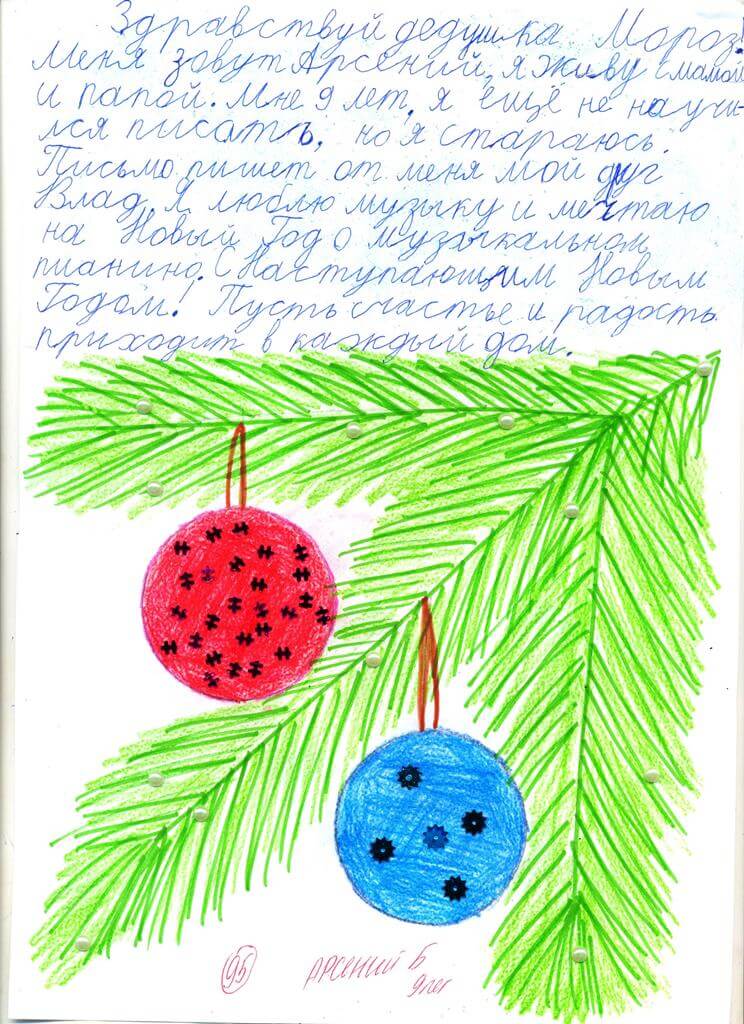 Здравствуй дедушка Мороз!
Меня зовут Арсений, я живу с мамой
и папой. Мне 9 лет, я ещё не научи-
лся писать, но я стараюсь.
Письмо пишет от меня мой друг
Влад. Я люблю музыку и мечтаю
на Новый Год о музыкальном
пианино. С Наступающим Новым
Годом! Пусть счастье и радость
приходит в каждый дом.
95 Арсений Б
9 лет